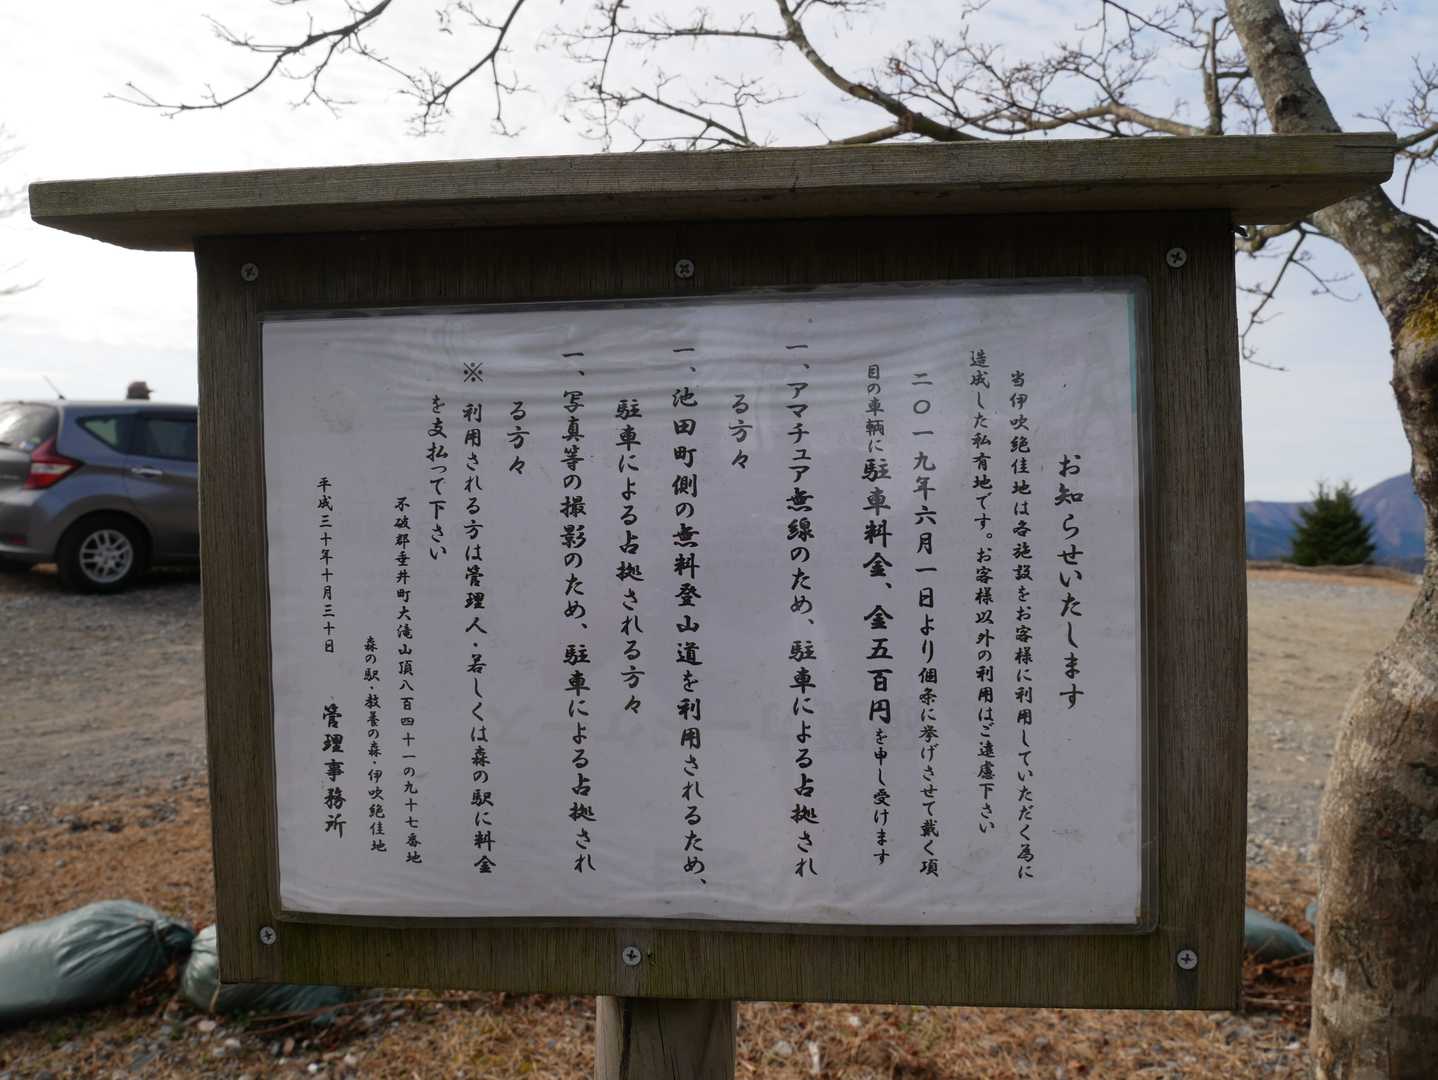 お知らせいたします
当伊吹絶佳地は各施設をお客様に利用していただく為に
造成した私有地です。お客様以外の利用はご遠慮下さい
二〇一九年六月一日より個条に挙げさせて戴く項
目の車輌に駐車料金、金五百円を申し受けます
一、アマチュア無線のため、駐車による占拠され
る方々
一、池田町側の無料登山道を利用されるため、
駐車による占拠される方々
一、写真等の撮影のため、駐車による占拠され
る方々
※利用される方は管理人・若しくは森の駅に料金
を支払って下さい
不破郡垂井町大滝山頂八百四十一の九十七番地
森の駅・教養の森・伊吹絶佳地
平成三十年十月三十日 管理事務所